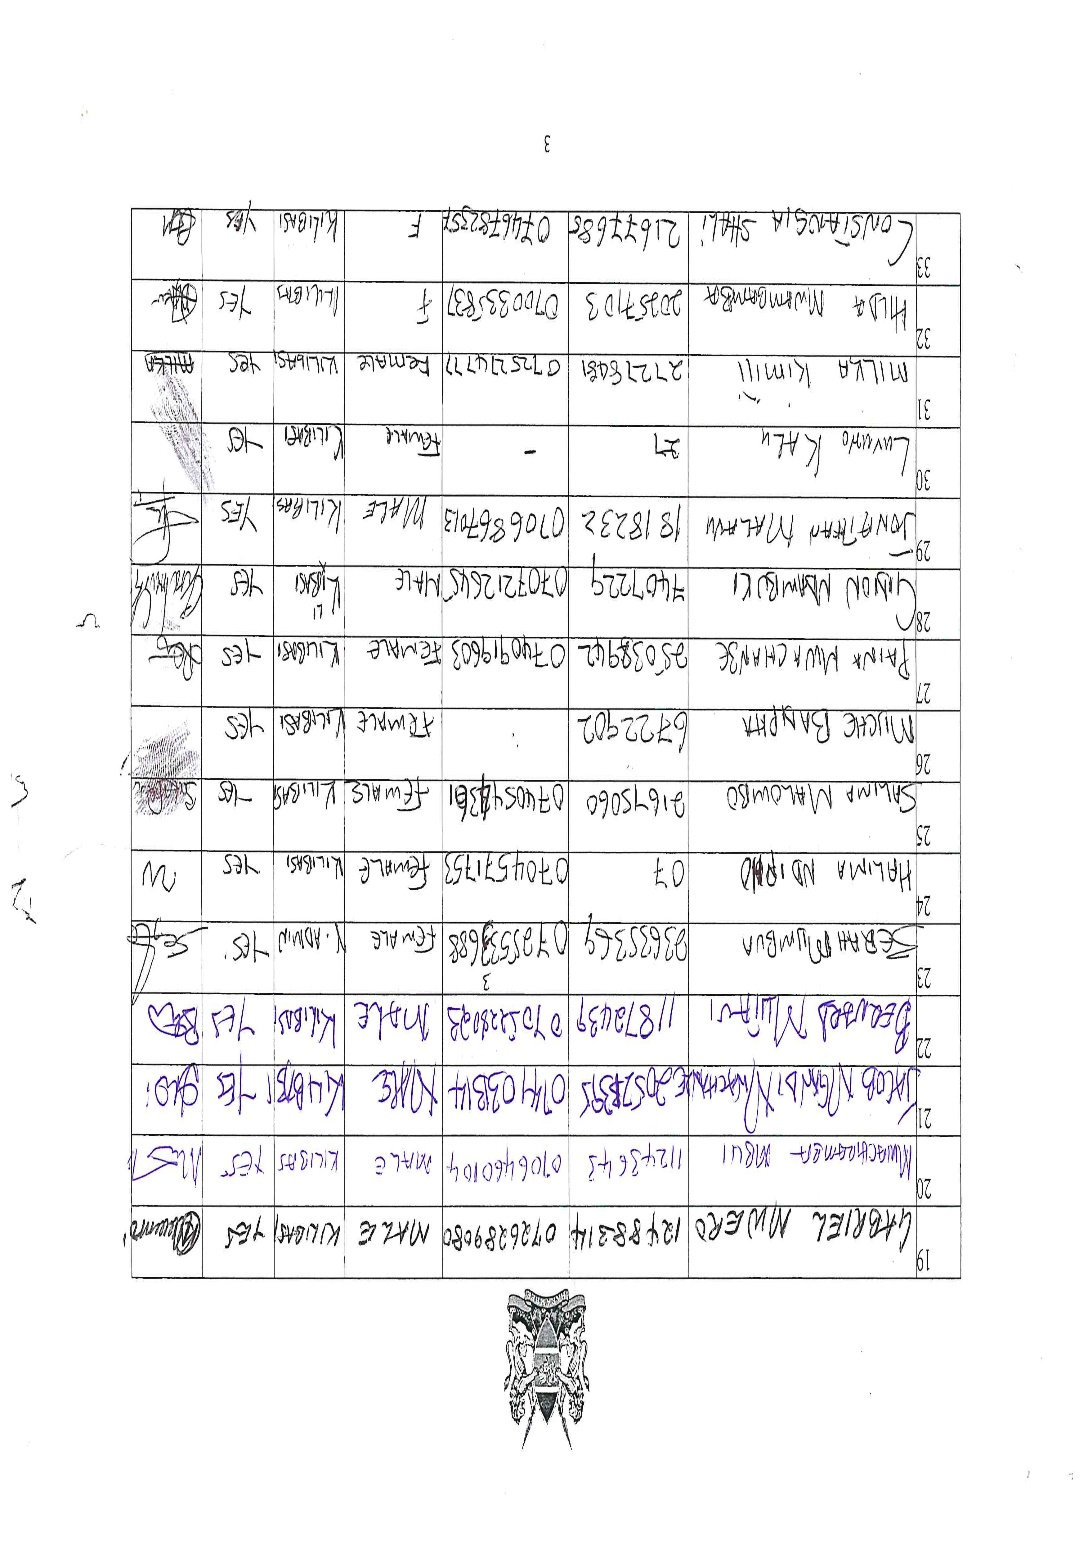 19 GABRIEL MWERO 12488314 0726289080 MALE KILIBASI YES
20 MWACHIRAMBA MBUI 11243643 0706460104 MALE KILIBASI YES
21 JACOB NGANDI MWACHANZE 20527395 MALE KILIBASI YES
22 BERNARD MUTAVI 11872439 MALE KILIBASI YES
23 SERAH MUMBUA 23635369 FEMALE K. ADMIN YES
24 HALIMA NDIRO 07 0704571753 FEMALE KILIBASI YES
25 SALIMA MALOMBO 21675060 FEMALE KILIBASI YES
26 MUCHE BANPHA 6722902 FEMALE KILIBASI YES
27 RAINA MWACHANZE 25038942 0740919603 FEMALE KILIBASI YES
28 GIDION NDAMBUKI 7407229 0707212645 MALE KILIBASI YES
29 JONATHAN MALAVU 1818232 0706867013 MALE KILIBASI YES
30 LUVUNO KALU 27 - FEMALE KILIBASI YES
31 MILKA KIMILI 27278481 0725274777 FEMALE KILIBASI YES MILKA
32 HILDA MWAMBAMBA 20257103 0700335837 F KILIBASI YES
33 CONSTANCIA SHALI 21677685 F KILIBASI YES
3